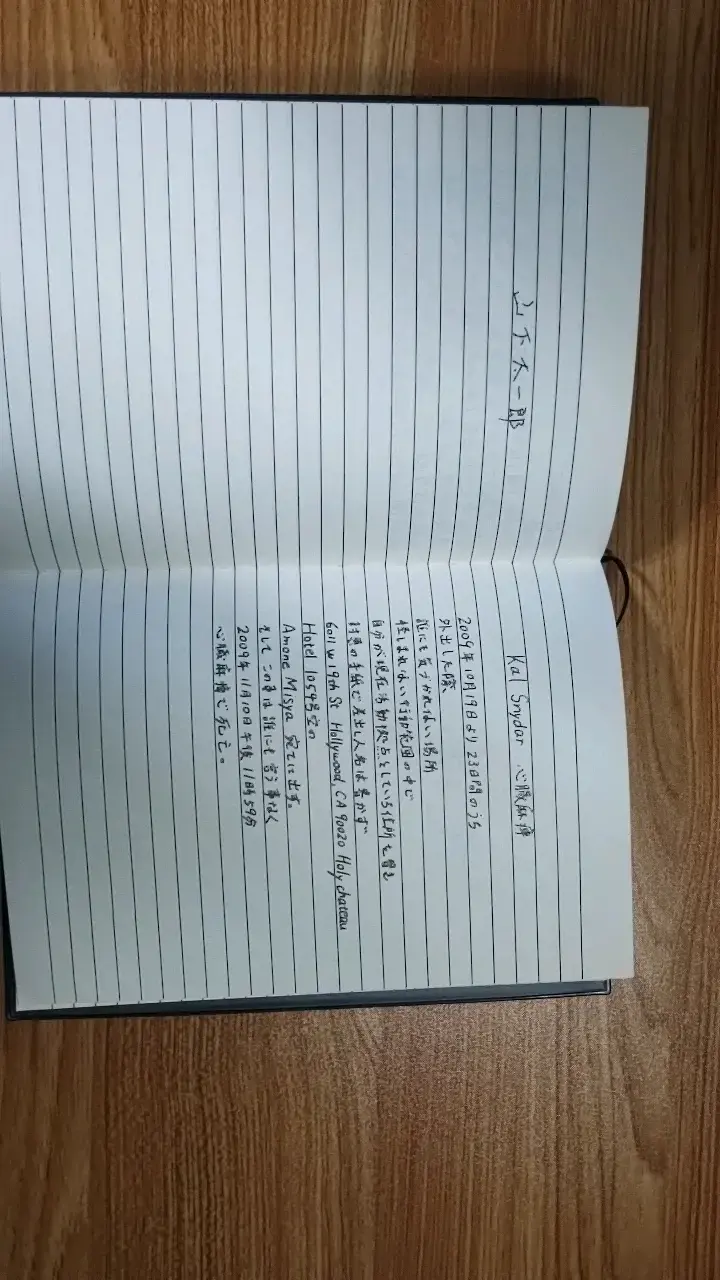 山下太一郎
Kal Snydar 心臓麻痺
2009年10月19日より23日間のうち
外出した際、
誰にも気づかれない場所
怪しまれない行動範囲の中で
自分が現在活動拠点としている住所を書き
封書の手紙で差出人名は書かず
6011 w 19th St Hollywood, CA 90020 Holy chateau
Hotel 1054号室の
Amane Misya 宛てに出す。
そしてこの事は誰にも言う事なく
2009年11月10日午後11時59分
心臓麻痺で死亡。